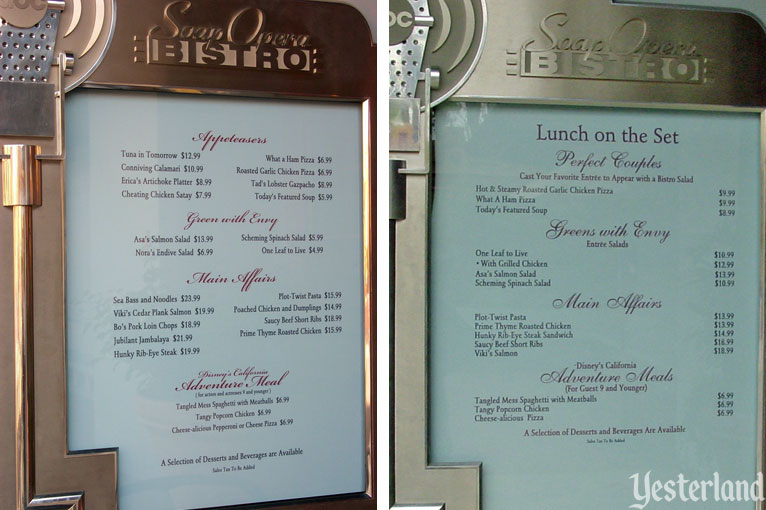 Soap Opera
BISTRO
Appeteasers
Tuna in Tomorrow $12.99
Conniving Calamari $10.99
Erica's Artichoke Platter $8.99
Cheating Chicken Satay $7.99
What a Ham Pizza $6.99
Roasted Garlic Chicken Pizza $6.99
Tad's Lobster Gazpacho $8.99
Today's Featured Soup $5.99
Green with Envy
Asa's Salmon Salad $13.99
Nora's Endive Salad $6.99
Scheming Spinach Salad $5.99
One Leaf to Live $4.99
Main Affairs
Sea Bass and Noodles $23.99
Viki's Cedar Plank Salmon $19.99
Bo's Pork Loin Chops $18.99
Jubilant Jambalaya $21.99
Hunky Rib-Eye Steak $19.99
Plot-Twist Pasta $15.99
Poached Chicken and Dumplings $14.99
Saucy Beef Short Ribs $18.99
Prime Thyme Roasted Chicken $15.99
Disney's California
Adventure Meal
( for actors and actresses 9 and younger )
Tangled Mess Spaghetti with Meatballs $6.99
Tangy Popcorn Chicken $6.99
Cheese-alicious Pepperoni or Cheese Pizza $6.99
A Selection of Desserts and Beverages are Available
Sales Tax To Be Added
Soap Opera
BISTRO
Lunch on the Set
Perfect Couples
Cast Your Favorite Entrée to Appear with a Bistro Salad
Hot & Steamy Roasted Garlic Chicken Pizza $9.99
What A Ham Pizza $9.99
Today's Featured Soup $8.99
Greens with Envy
Entrée Salads
One Leaf to Live $10.99
• With Grilled Chicken $12.99
Asa's Salmon Salad $13.99
Scheming Spinach Salad $10.99
Main Affairs
Plot-Twist Pasta $13.99
Prime Thyme Roasted Chicken $13.99
Hunky Rib-Eye Steak Sandwich $14.99
Saucy Beef Short Ribs $16.99
Viki's Salmon $18.99
Disney's California
Adventure Meals
(For Guest 9 and Younger)
Tangled Mess Spaghetti with Meatballs $6.99
Tangy Popcorn Chicken $6.99
Cheese-alicious Pizza $6.99
A Selection of Desserts and Beverages Are Available
Sales Tax To Be Added
Yesterland